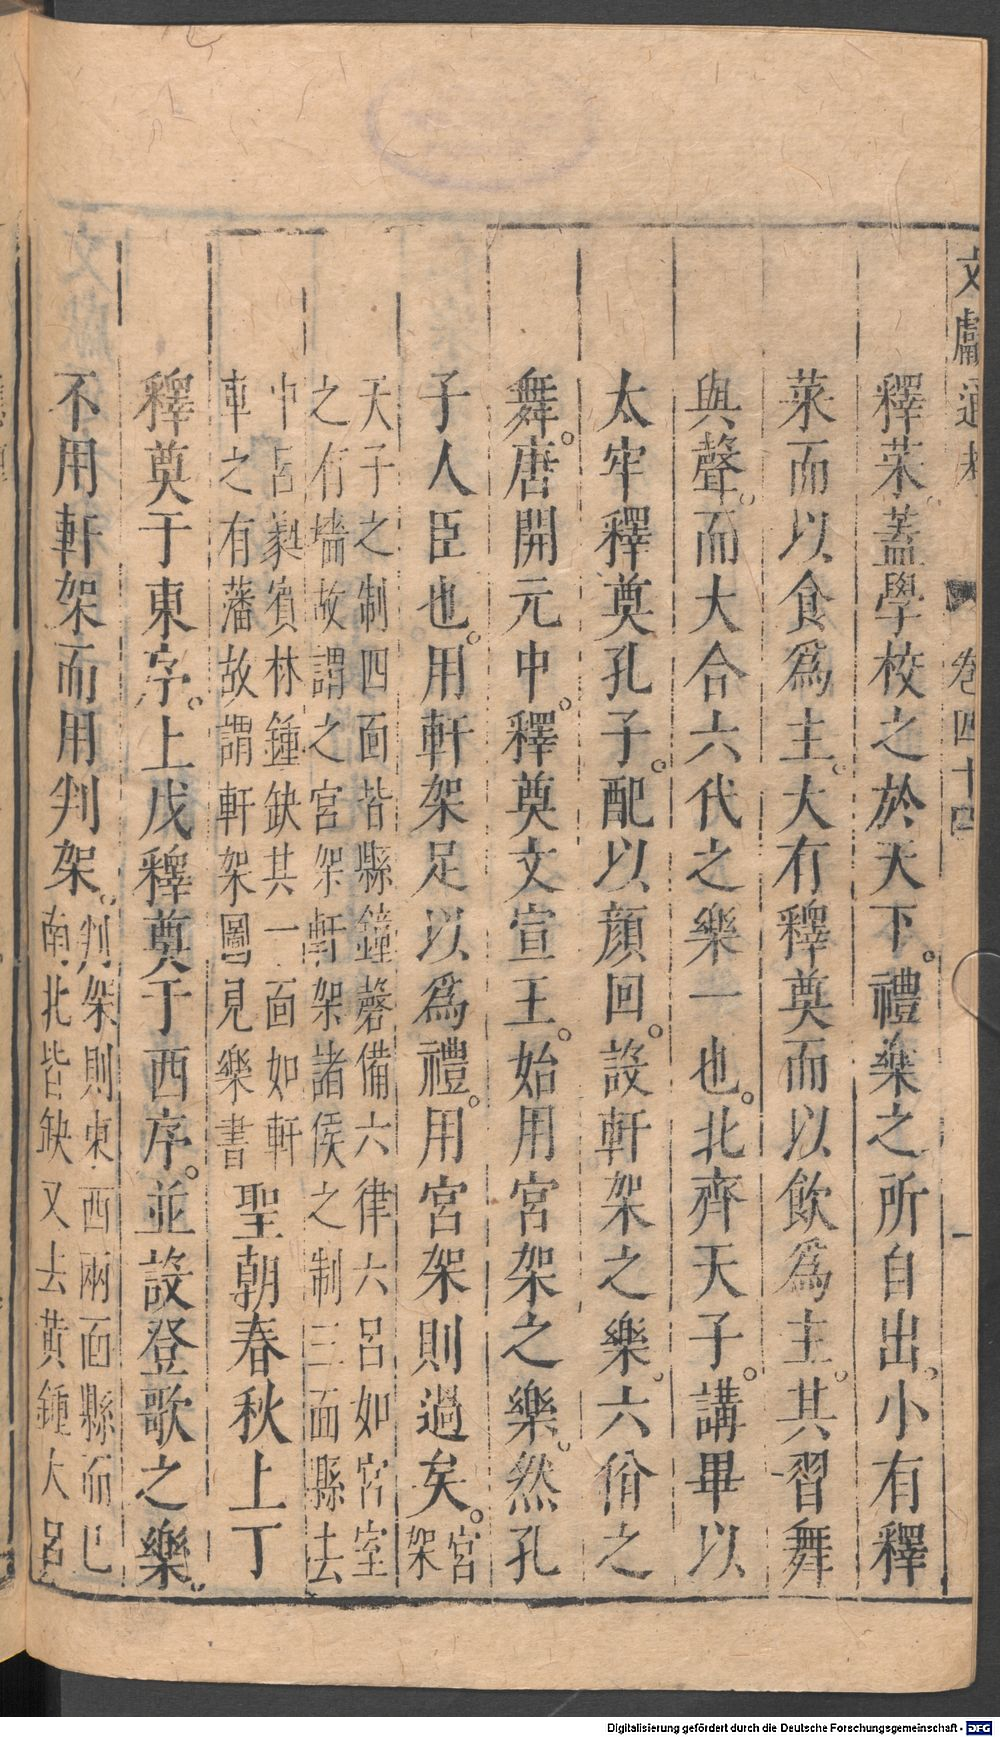 文獻通考 卷四十四 一
釋菜。蓋學校之於天下。禮樂之所自出。小有釋
菜而以食爲主。大有釋奠而以飲爲主。其習舞
與聲。而大合六代之樂一也。北齊天子。講畢以
太牢釋奠孔子。配以顏回。設軒架之樂。六佾之
舞。唐開元中。釋奠文宣王。始用宮架之樂。然孔
子人臣也。用軒架足以爲禮。用宮架則過矣。宮
架
天子之制四面皆縣鐘磬備六律六呂如宮室
之有墻故謂之宮架軒架諸侯之制三面縣去
中呂蕤賓林鍾缺其一面如軒
車之有藩故謂軒架圖見樂書
聖朝春秋上丁
釋奠于東序。上戊釋奠于西序。並設登歌之樂。
不用軒架而用判架。
判架則東西兩面縣而已
南北皆缺又去黃鍾大呂
Digitalisierung gefördert durch die Deutsche Forschungsgemeinschaft - DFG